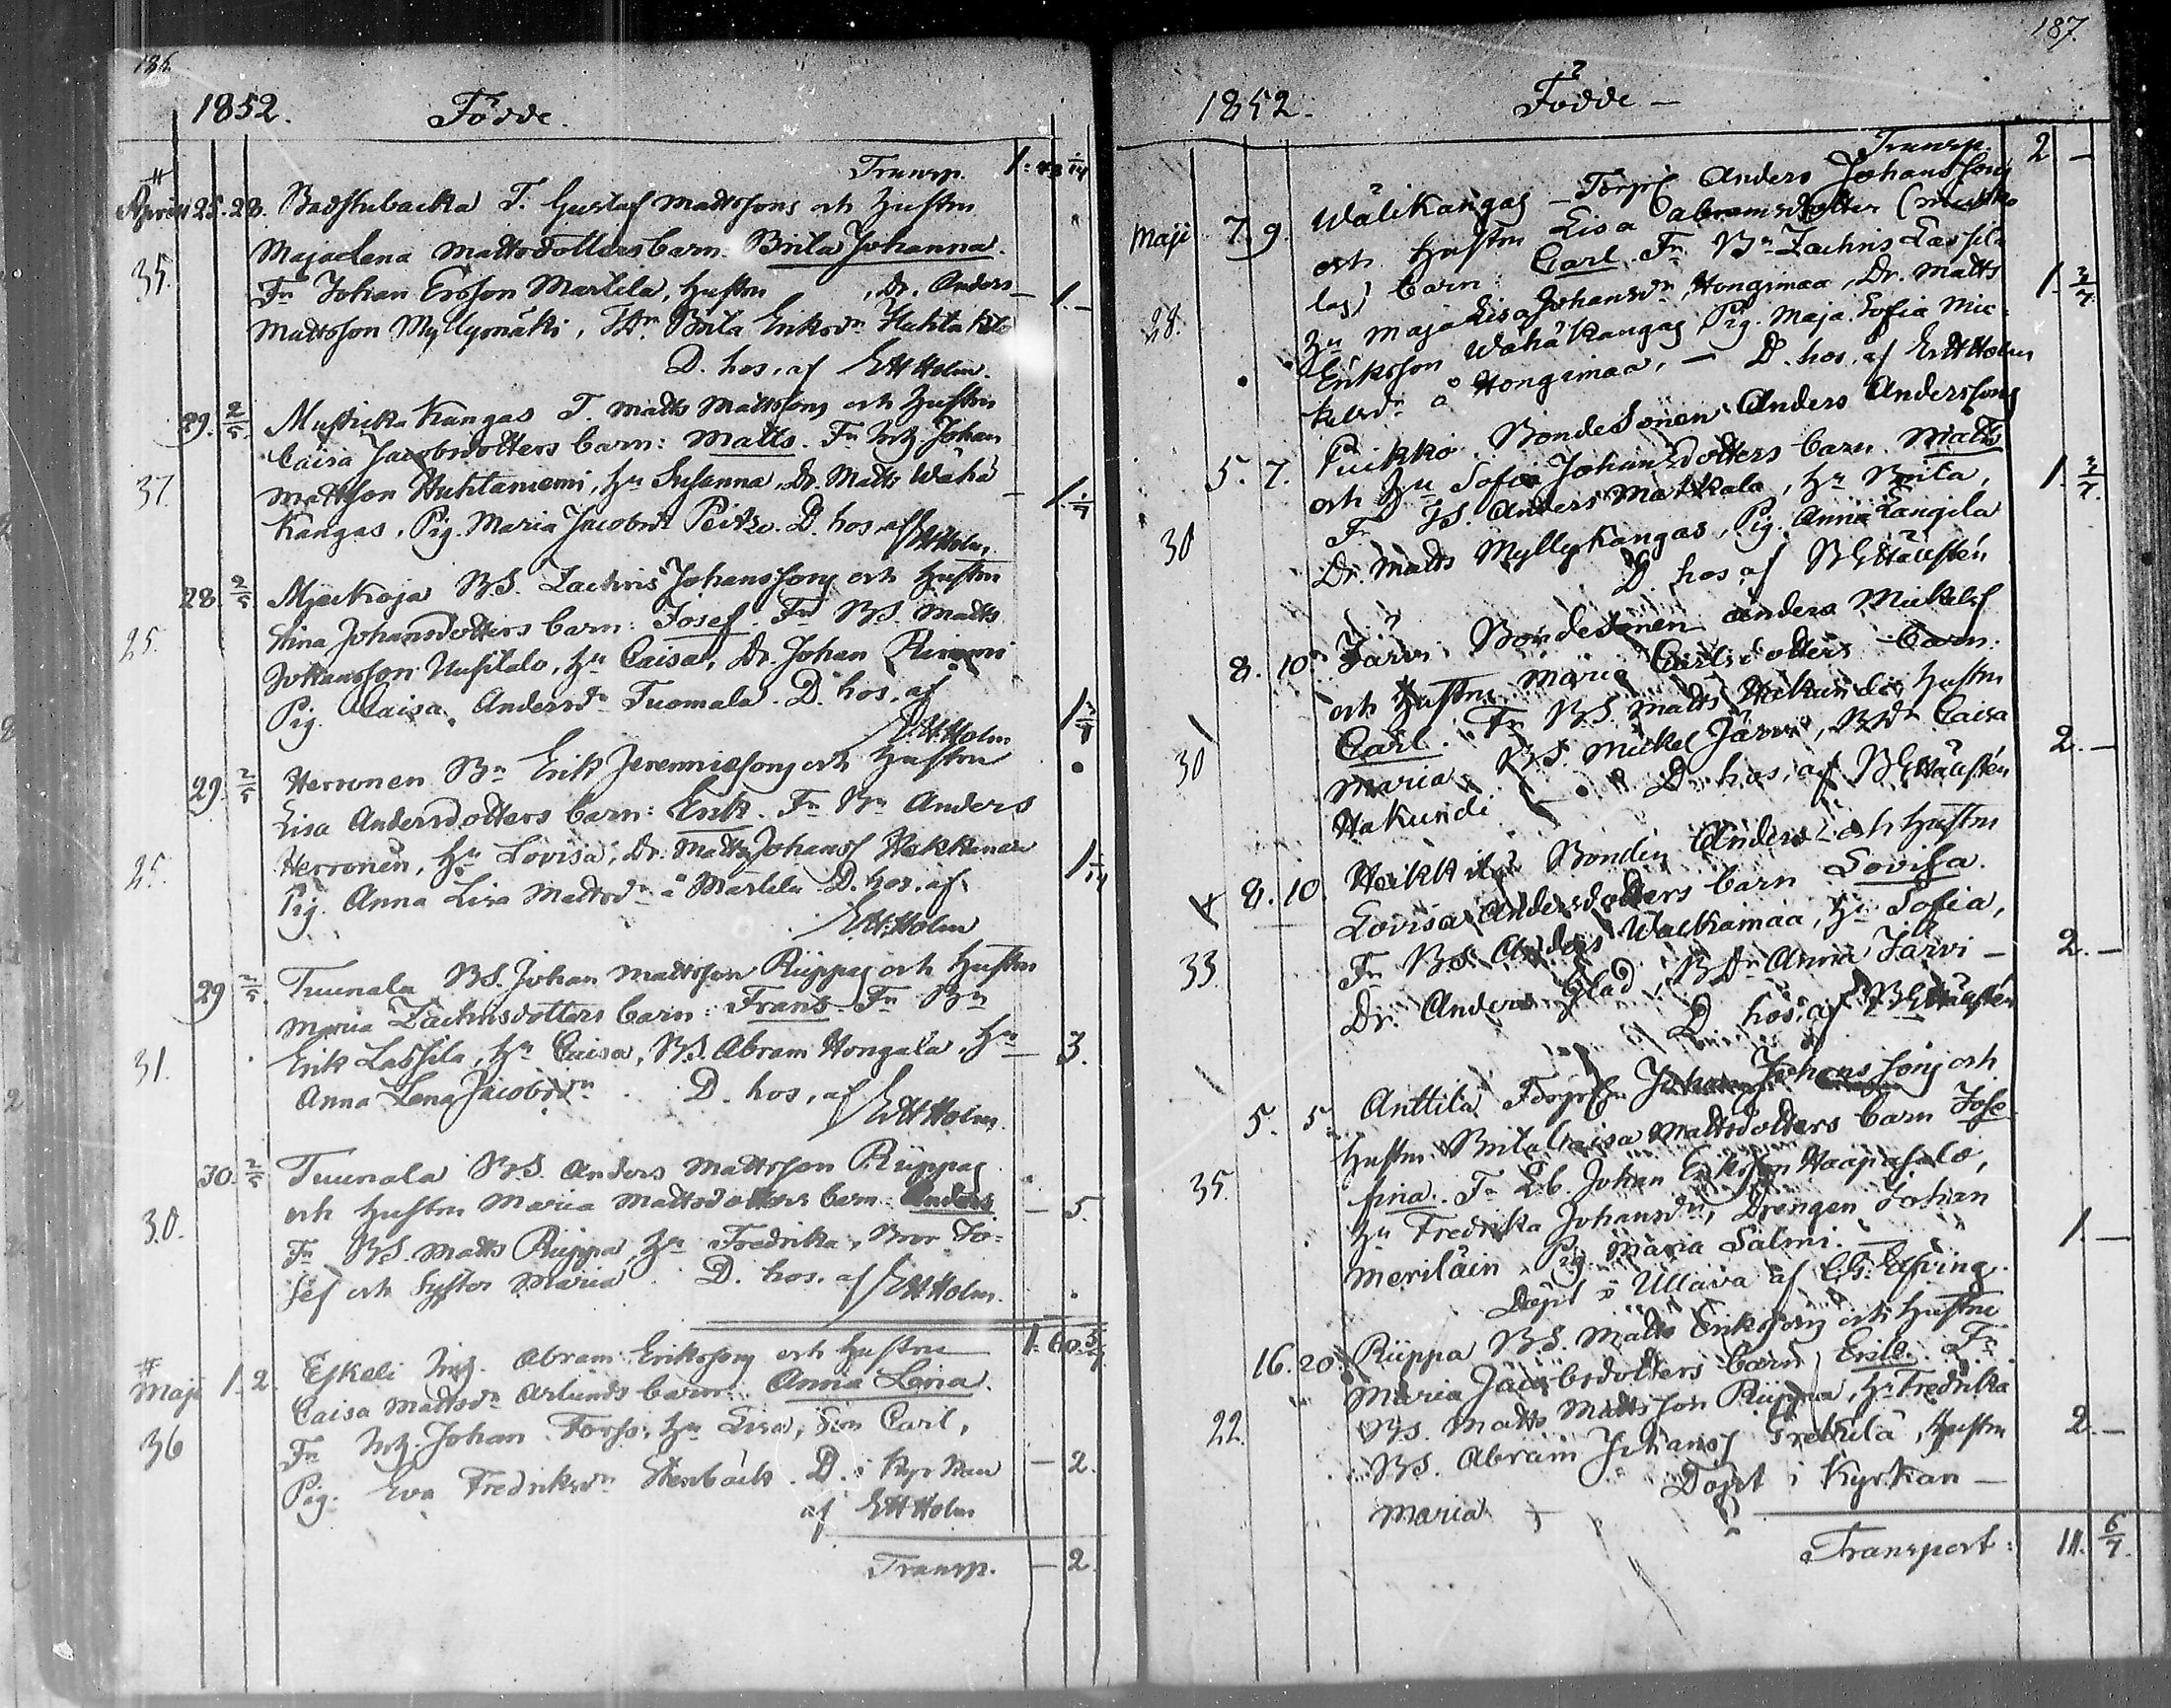 186.
1852. Födde.
Transp. 1. 43 1/14
April 25. 28. Badstubacka T. Gustaf Mattssons och Hustrun
Maja Lena Mattsdotters barn: Brita Johanna.
35. Fn Johan Ersson Martila, Hustru , Dr. Anders 1.
Mattsson Myllymäki, Brita Eriksdn Huhta
D. hos, af EHHolm.
29. 2/5 Mustikka Kangas T. Matts Mattssons och Hustrun
Caisa Jacobsdotters barn: Matts. Fn Johan
37. Mattsson Huhtaniemi, Hu Susanna, Dr. Matts Wähä 1.
Kangas, Pig. Maria Jacobsdr Peitzo. D. hos, af
EHHolm.
28 2/5 Myökoja BS. Zachris Johanssons och Hustrun
25. Stina Johansdotters barn: Josef. Fn BS. Matts
Johansson Uusitalo, Hu Caisa, Dr. Johan
Pig. Caisa Andersdn Tuomala. D. hos, af
EHHolm
29. 2/5 Herronen Bn Erik Jeremniesons och Hustrun
Lisa Andersdotters barn: Erik. Fn Bn Anders
25. Herronen, Hu Lovisa, Dr. Matts Johanss Hakkanen 1 1/14
Pig. Anna Lisa Mattsdn å Martila D. hos, af
EHHolm
29 2/5 Tuunala BS. Johan Mattsson Rüppas och Hustrun
Maria Zachrisdotters barn: Frans. Fn Bn
31. Erik Lassila, Hu Caisa, BS. Abram Hongala, Hu 3.
Anna Lena Jacobsdn D. hos, af
EHHolm.
30. 2/5 Tuunala BS. Anders Mattsson Rüppas
30. och Hustrun Maria Mattsdotters barn: Anders 5.
Fn BS. Matts Rüppa, Hu Fredrika, Bror Jo-
sef och Syster Maria D. hos, af EHHolm.
1. 60. 5/7
Maji 1. 2. Eskeli Abram Erikssons och Hustrun
Caisa Mattsdn Arlunds barn: Anna Lena.
36 Fn Johan Forss, Hu Lisa, Son Carl,
Pig. Eva Fredriksdn Stenbäck. D. i Kyrkan 2.
af EHHolm
Transp. 2.
187.
1852. Födde
Transp. 2 —
Maji 7. 9. Wälikangas Torps Anders Johanssons
och Hustrun Lisa Abramsdotter (
las) barn: Carl. Fn Bn Zachris Lassila
28. Hu Maja Lisa Johansdn, Hongimaa, Dr. Matts 1. 3/7
Eriksson Wähäkangas, Pig. Maja Sofia Mic-
kelsdn å Hongimaa, — D. hos, af EHHolm
5. 7. Puikko Bondesonen Anders Anderssons
och Hu Sofia Johansdotters barn Matts
30 Fn BS. Anders Matkala, Hu Brita, 1. 3/7.
Dr. Matts Myllykangas, Pig. Anna Längila
D. hos, af BEHällstén
8. 10. Järvi Bondesonen Anders Mickelss
och Hustrun Maria Carlsdotters barn:
30 Carl. Fn BS. Matts Hakundi, Hustru
Maria, BS. Mickel Järvi, BDn Caisa 2. —
Hakundi — D. hos, af BEHällstén
8. 10. Heikkilä Bonden Anders och Hustrun
Lovisa Andersdotters barn Lovisa.
33 Fn BS. Anders Walkamaa, Hu Sofia,
Dr. Anders Glad, BDn Anna Järvi — 2. —
D. hos, af BEHällstén
5. 5. Anttila Torpn Johan Johanssons och
Hustrun Brita Caisa Mattsdotters barn Jose-
35. fina. Fn Lb. Johan Eriksson Haapasalo,
Hu Fredrika Johansdn, Drengen Johan 1. —
Meriläin, Pig. Maria Salmi. —
Döpt i Ullava af CG: Elfving.
16. 20. Rüppa BS. Matts Erikssons och Hustrun
Maria Jacobsdotters barn Erik. Fn
22. BS. Matts Mattsson Rüppa, Hu Fredrika
BS. Abram Johanss , Hustru 2. —
Maria Döpt i Kyrkan —
Transport: 11. 6/7.